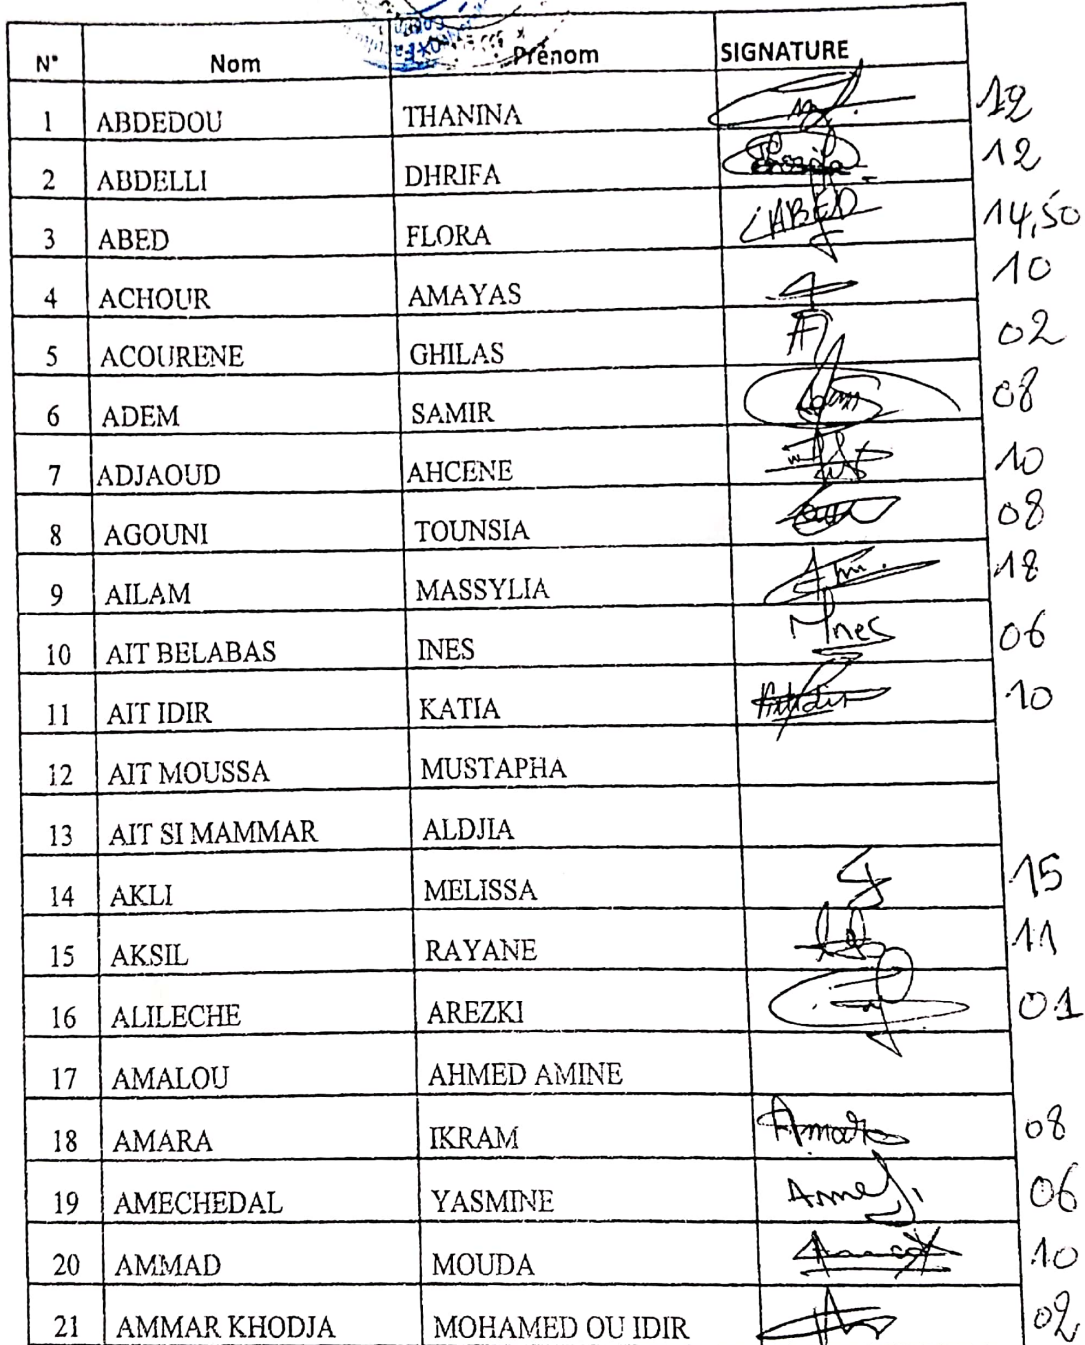 N° Nom Prénom SIGNATURE
1 ABDEDOU THANINA 12
2 ABDELLI DHRIFA 12
3 ABED FLORA ABED 14,50
4 ACHOUR AMAYAS 10
5 ACOURENE GHILAS 02
6 ADEM SAMIR 08
7 ADJAOUD AHCENE 10
8 AGOUNI TOUNSIA 08
9 AILAM MASSYLIA 18
10 AIT BELABAS INES 06
11 AIT IDIR KATIA 10
12 AIT MOUSSA MUSTAPHA
13 AIT SI MAMMAR ALDJIA
14 AKLI MELISSA 15
15 AKSIL RAYANE 11
16 ALILECHE AREZKI 01
17 AMALOU AHMED AMINE
18 AMARA IKRAM Amara 08
19 AMECHEDAL YASMINE 06
20 AMMAD MOUDA 10
21 AMMAR KHODJA MOHAMED OU IDIR 02